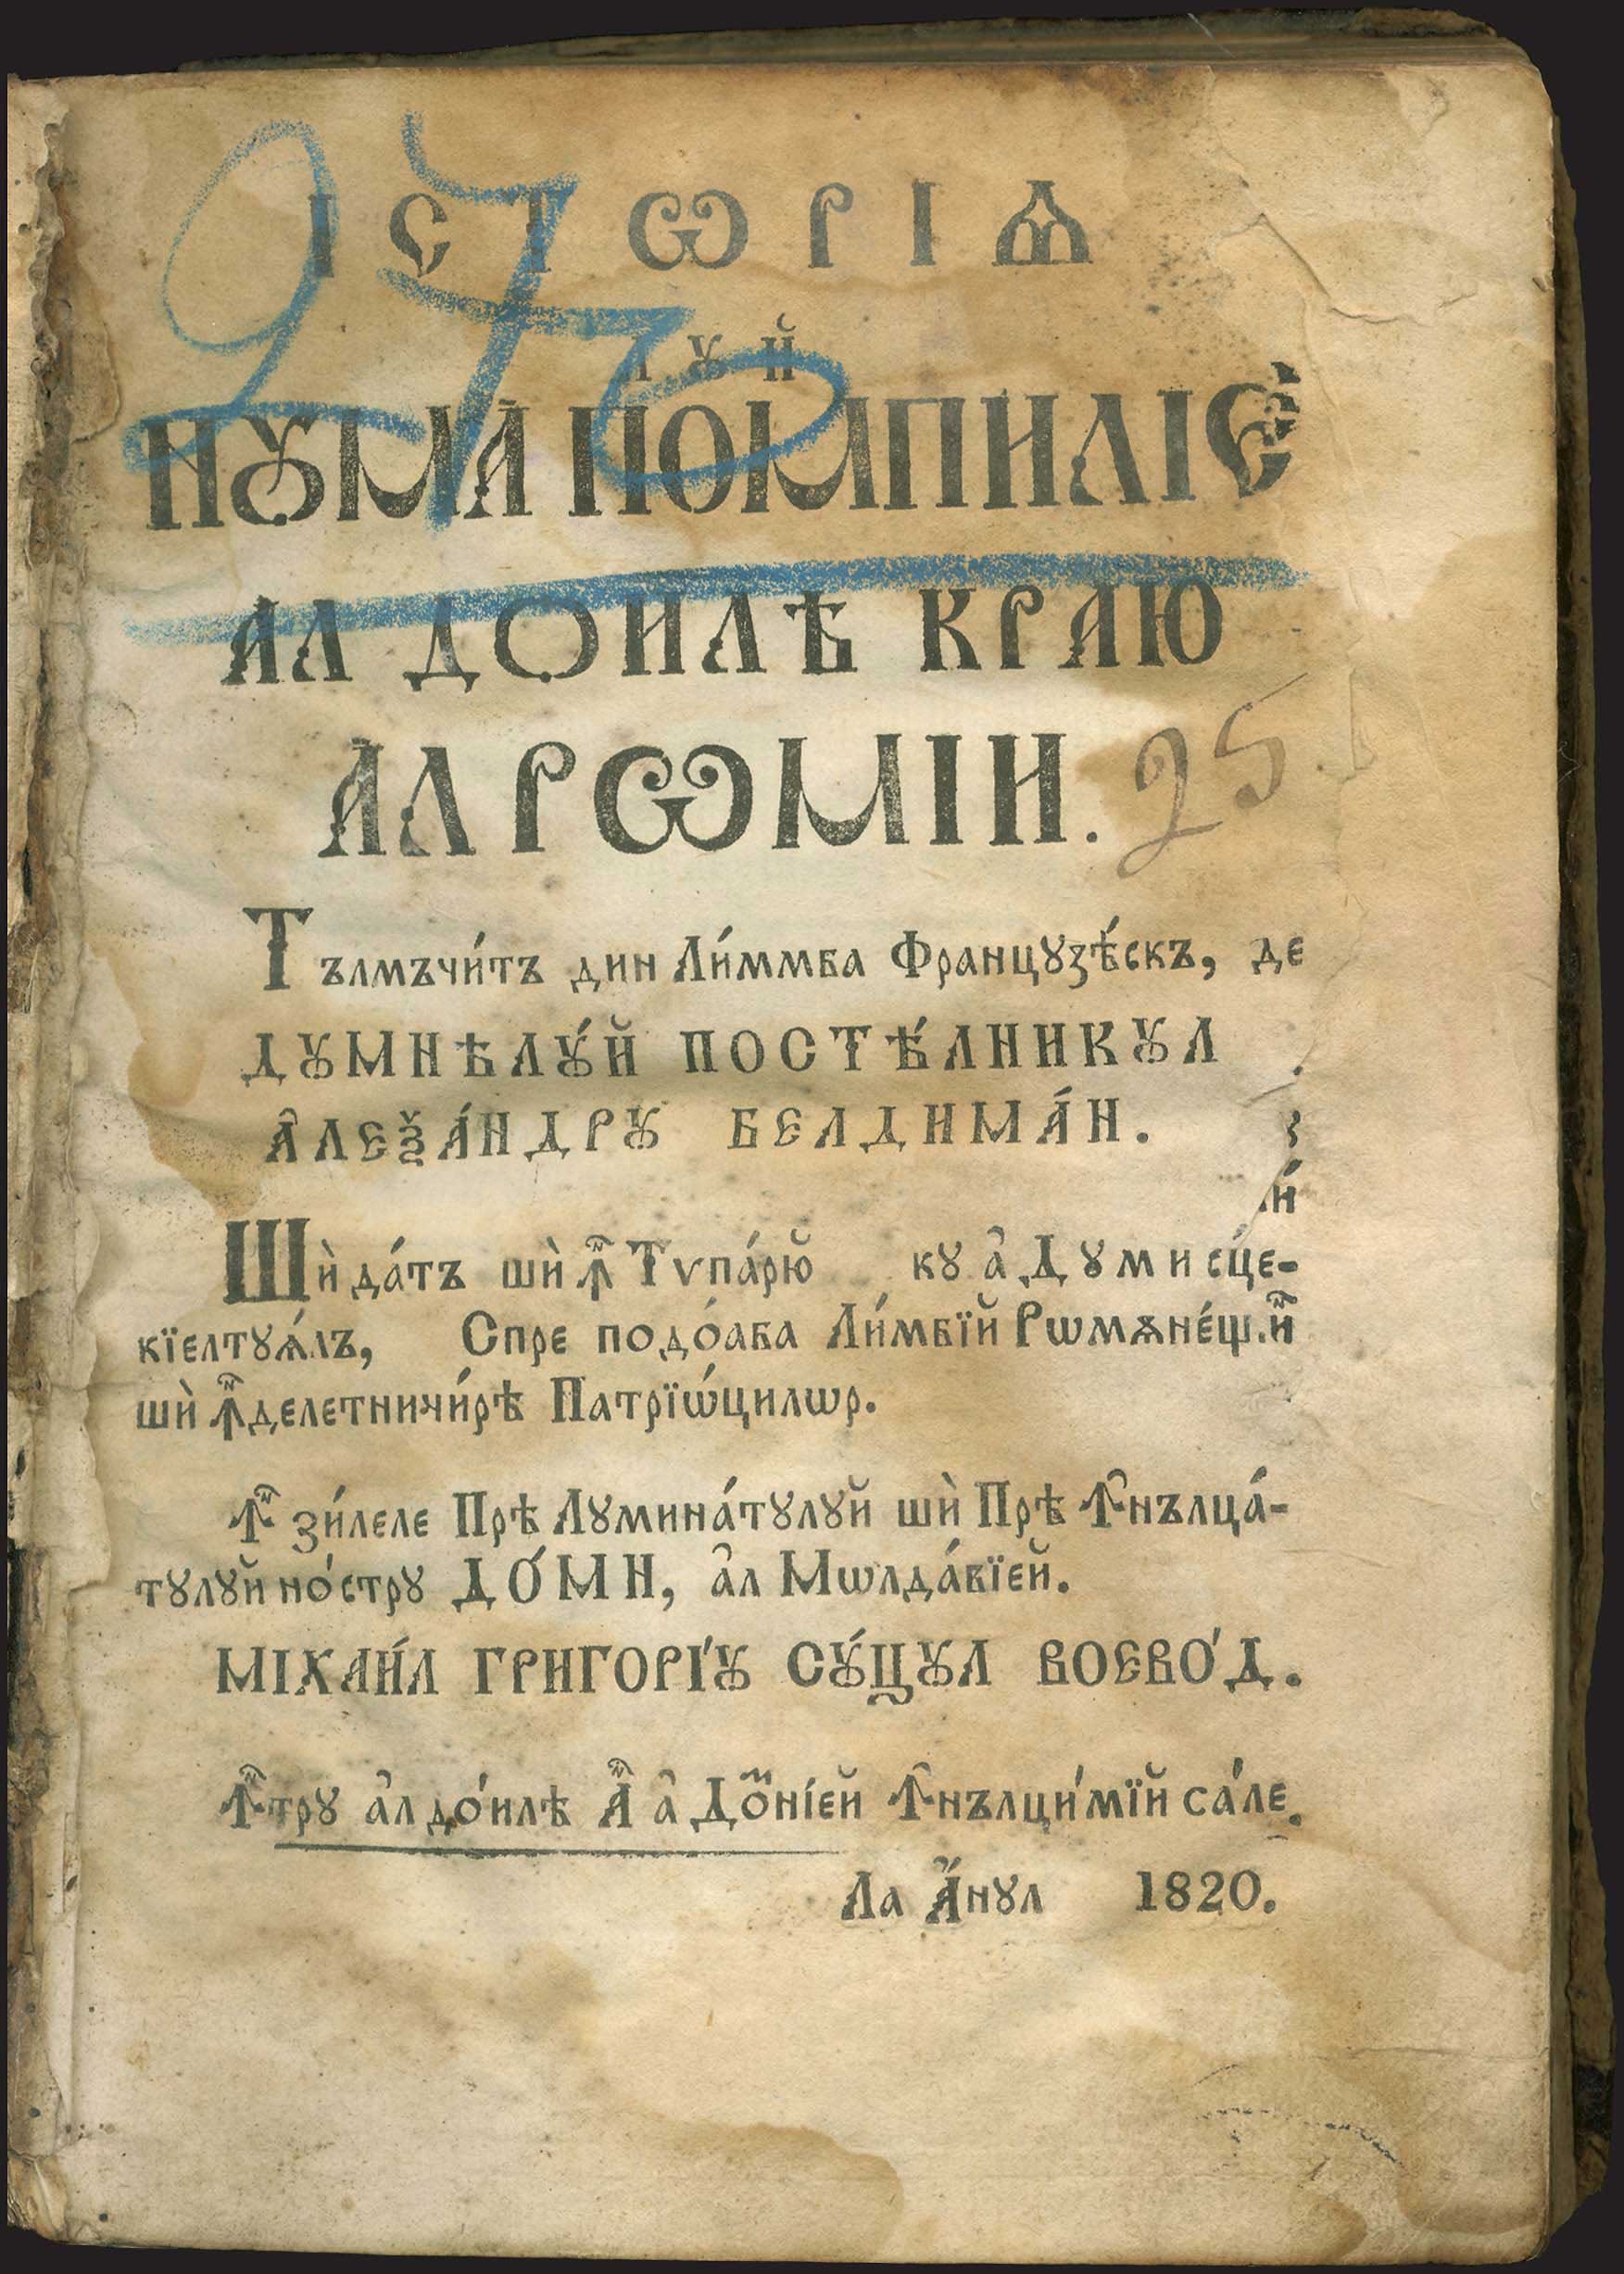 ІСТѠРІѦ
ЛꙊЙ
НꙊМА ПОМПИЛІЄ
АЛ ДОИЛѢ КРАЮ
АЛ РѠМІИ.
Тълмъчи́тъ дин Ли́ммба Францꙋзѣ́скъ, де
ДꙊМНѢЛꙊ́Й ПОСТѢ́ЛНИКꙊЛ
А҆ЛЕѮА́НДРꙊ БЕЛДИМА́Н.
Шѝ да́тъ шѝ ꙟ Тѵпа́рю̆ кꙋ а҆
кїелтꙋѧ́лъ, Спре подо́аба Ли́мбїй Рѡмѫне́щй
шѝ ꙟделетничи́рѣ Патрїѡ́цилѡр.
Ꙟ зи́леле Прѣ Лꙋмина́тꙋлꙋй шѝ Прѣ Ꙟнълца́-
тꙋлꙋй но́стрꙋ ДО́МН, а҆л Мѡлда́вїей.
МІХАИ́Л ГРИГОРІ́Ꙋ СꙊ́ЦꙊЛ ВОЄВО́Д.
Ꙟтрꙋ а҆л до́илѣ А҆н а҆ Дом҃ні́ей Ꙟнълци́мїй са́ле.
Ла А҆́нꙋл 1820.
25
276